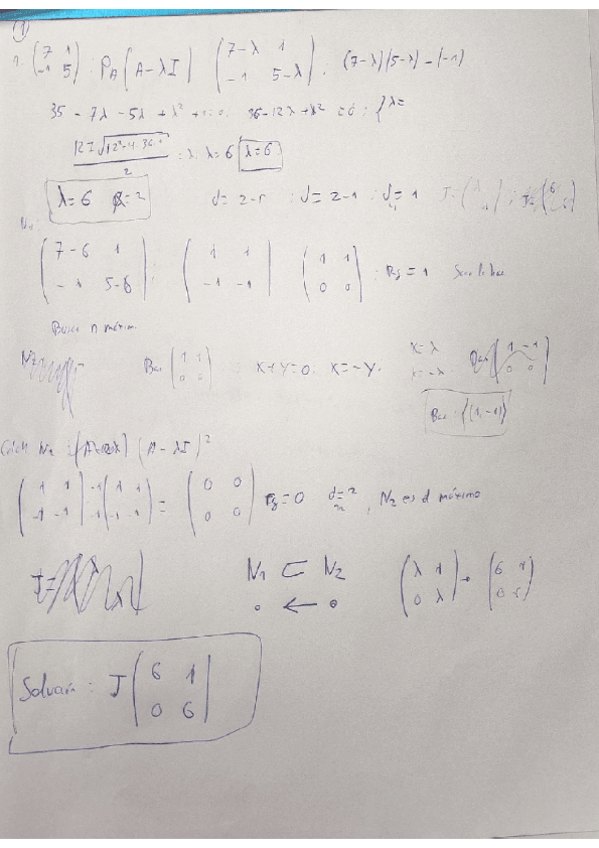 (1)
1. (7 1 / -1 5) : P_A (A-λI) (7-λ 1 / -1 5-λ) : (7-λ)(5-λ)-(-1)
35 - 7λ - 5λ + λ² + 1 = 0. 36-12λ+λ² = 0 : { λ=
12 ± √12²-4·36·1 / 2 : λ=6 λ=6
λ=6 α=2 d= 2-r : d= 2-1 : d=1
N₁
(7-6 1 / -1 5-6) : (1 1 / -1 -1) (1 1 / 0 0) : Rg = 1
Busca n máximo
N2 (1 1 / 0 0) x+y=0 : x=-y. x=λ
Base : {(1,-1)}
N2 : (A-λI)²
(1 1 / -1 -1) (1 1 / -1 -1) = (0 0 / 0 0) rg=0 d=2, N2 es el máximo
N₁ ⊂ N₂ (λ 1 / 0 λ) → (6 1 / 0 6)
. ← .
Solución : J (6 1 / 0 6)